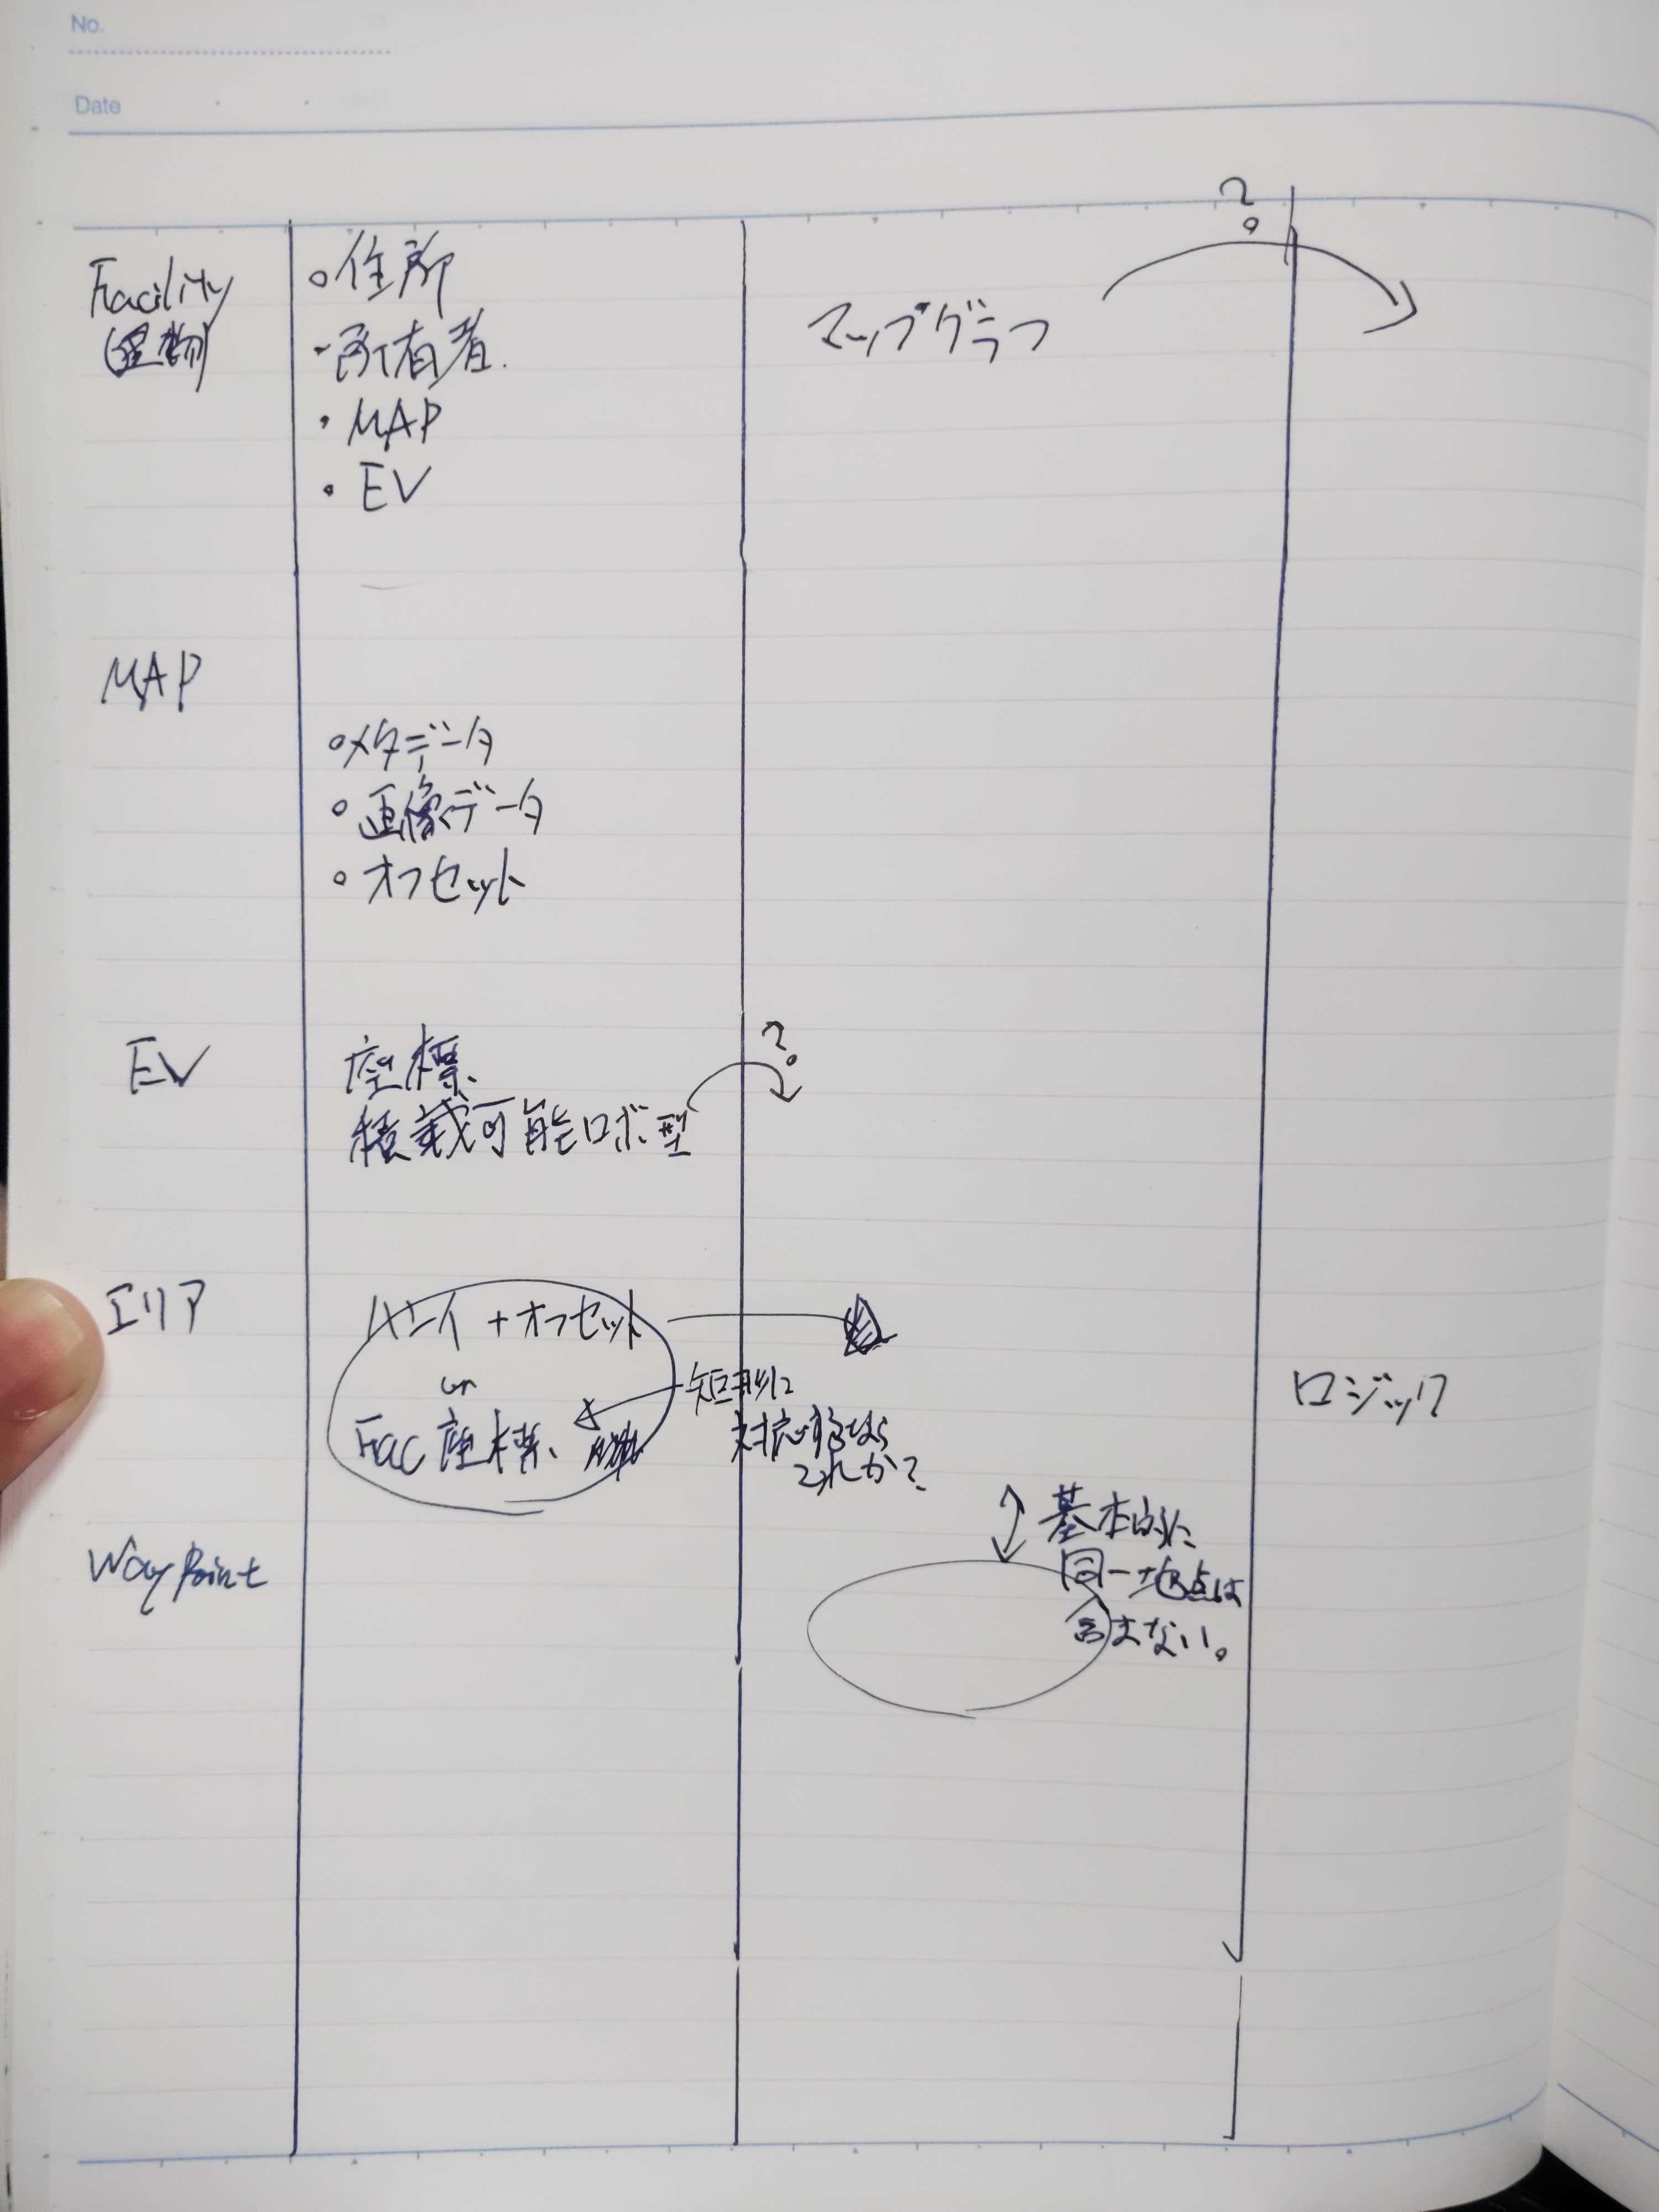 No.
Date
?
Facility
(建物)
住所
所有者.
MAP
EV
マップグラフ
MAP
メタデータ
画像データ
オフセット
EV
座標、
積載可能ロボ型
?
エリア
ハンイ + オフセット
or
Fac 座標、
短期に
対応するなら
これか?
ロジック
Way Point
基本的に
同一地点は
含まない。